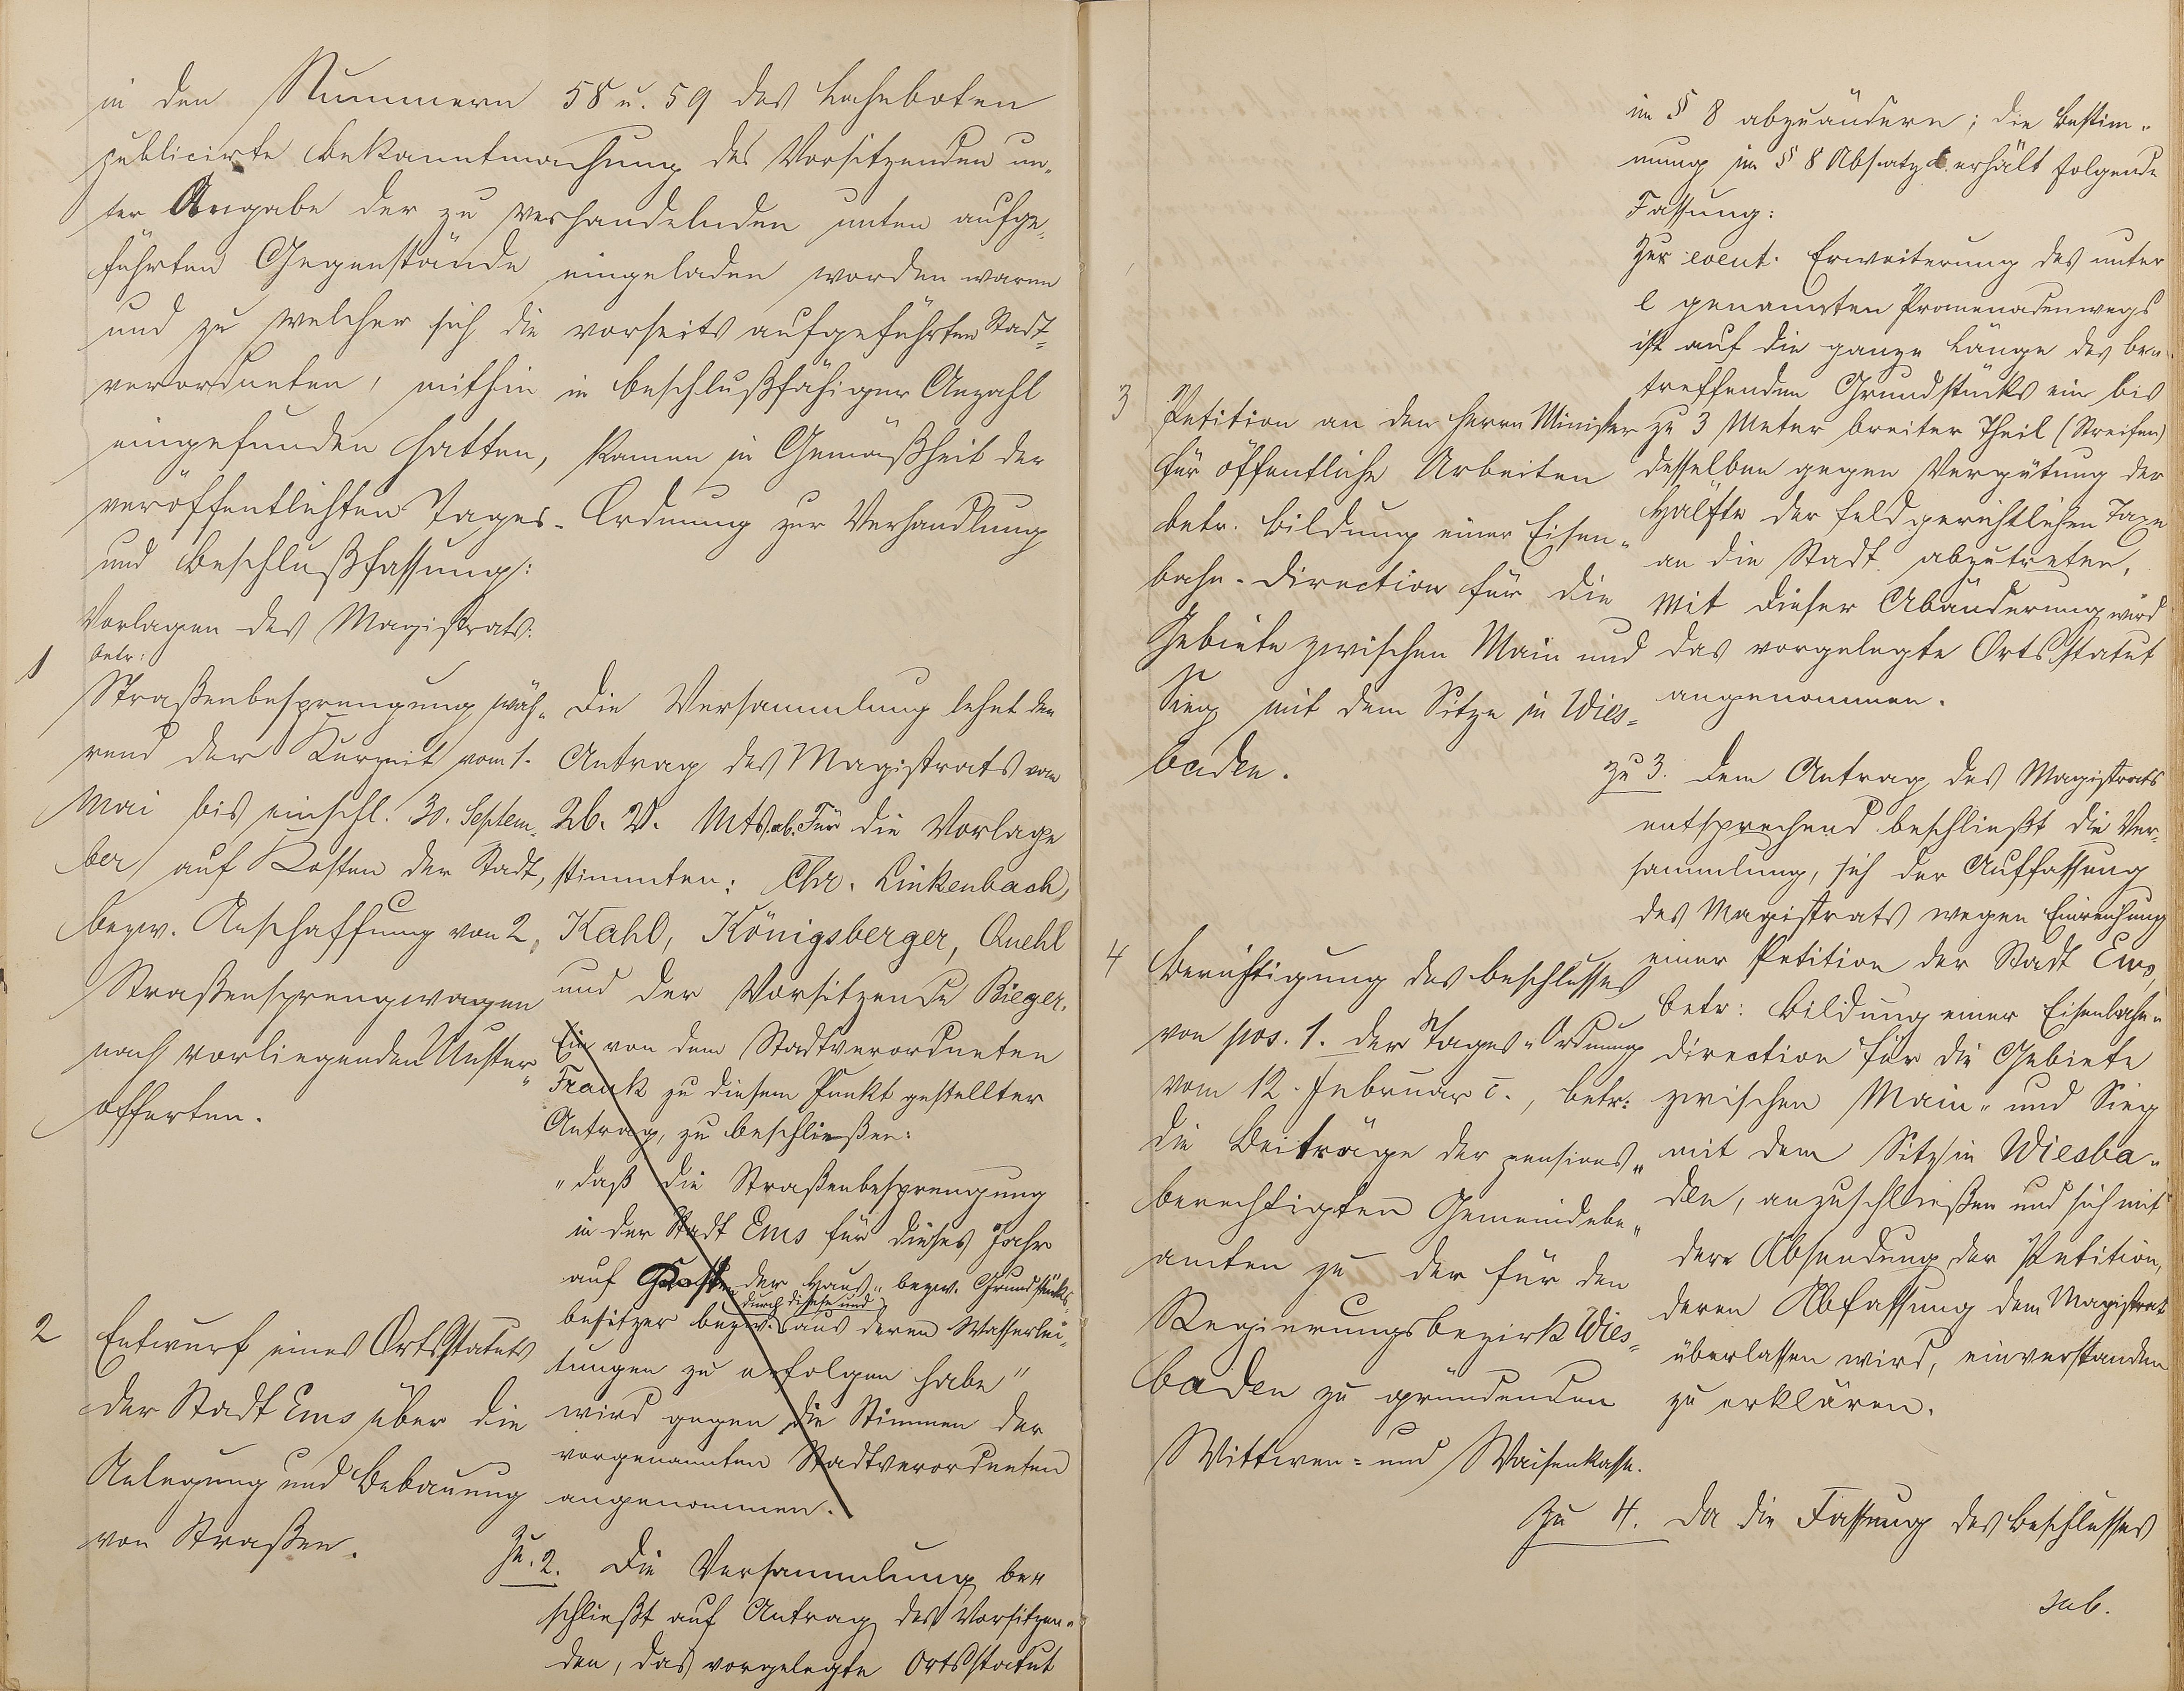 in den Nummern 58 u. 59 des Lahnboten
publicirte Bekanntmachung des Vorsitzenden un-
ter Angabe der zu verhandelnden unten aufge-
führten Gegenstände eingeladen worden waren
und zu welcher sich die vorseits aufgeführten Stadt-
verordneten, mithin in beschlußfähiger Anzahl
eingefunden hatten, kamen in Gemäßheit der
veröffentlichten Tages-Ordnung zur Verhandlung
und Beschlußfassung:
Vorlagen des Magistrats.
1
betr:
Straßenbesprengung wäh-
rend der Kurzeit vom 1.
Mai bis einschl. 30. Septem-
ber auf Kosten der Stadt,
bezw. Anschaffung von 2
Straßensprengwagen
nach vorliegenden Muster-
offerten.
Die Versammlung lehnt den
Antrag des Magistrats vom
26. v. Mts. ab. Für die Vorlage
stimmten: Chr. Linkenbach,
Kahl, Königsberger, Quehl
und der Vorsitzende Bieger.
Ein von dem Stadtverordneten
Frank zu diesem Punkt gestellter
Antrag, zu beschließen:
"daß die Straßenbesprengung
in der Stadt Ems für dieses Jahr
auf Kosten der Haus- bezw. Grundstücks-
durch diese und
besitzer bezw. aus deren Wasserlei-
tungen zu erfolgen habe"
wird gegen die Stimmen der
vorgenannten Stadtverordneten
angenommen.
2
Entwurf eines Ortsstatuts
der Stadt Ems über die
Anlegung und Bebauung
von Straßen.
Zu. 2. Die Versammlung be-
schließt auf Antrag des Vorsitzen-
den, das vorgelegte Ortsstatut
im § 8 abzuändern; die Bestim-
mung im § 8 Absatz erhält folgende
Fassung:
Zur event. Erweiterung des unter
l genannten Promenadenwegs
ist auf die ganze Länge des be-
treffenden Grundstücks ein bis
zu 3 Meter breiter Theil (Streifen)
desselben gegen Vergütung der
Hälfte der feldgerichtlichen Taxe
an die Stadt abzutreten.
Mit dieser Abänderung wird
das vorgelegte Ortsstatut
angenommen.
3
Petition an den Herrn Minister
für öffentliche Arbeiten
betr. Bildung einer Eisen-
bahn-Direction für die
Gebiete zwischen Main und
Sieg mit dem Sitze in Wies-
baden.
Zu 3. Dem Antrag des Magistrats
entsprechend beschließt die Ver-
sammlung, sich der Auffassung
des Magistrats wegen Einreichung
einer Petition der Stadt Ems,
betr: Bildung einer Eisenbahn-
direction für die Gebiete
zwischen Main- und Sieg
mit dem Sitz in Wiesba-
den, anzuschließen und sich mit
der Absendung der Petition,
deren Abfassung dem Magistrat
überlassen wird, einverstanden
zu erklären.
4
Berichtigung des Beschlusses
von pos. 1. der Tages-Ordnung
vom 12. Februar c., betr:
die Beiträge der pensions-
berechtigten Gemeindebe-
amten zu der für den
Regierungsbezirk Wies-
baden zu gründenden
Wittwen- und Waisenkasse.
Zu 4. Da die Fassung des Beschlusses
sub.